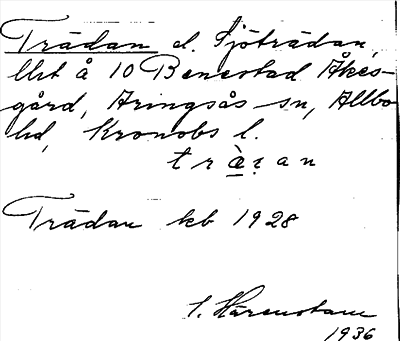 Trädan el. Sjöträdan,
llst å 10 Benestad Åkes-
gård, Aringsås sn, Allbo
hd, Kronobs l.
t r ä̀ ṛ a n
Trädan kb 1928
S. Härenstam
1936